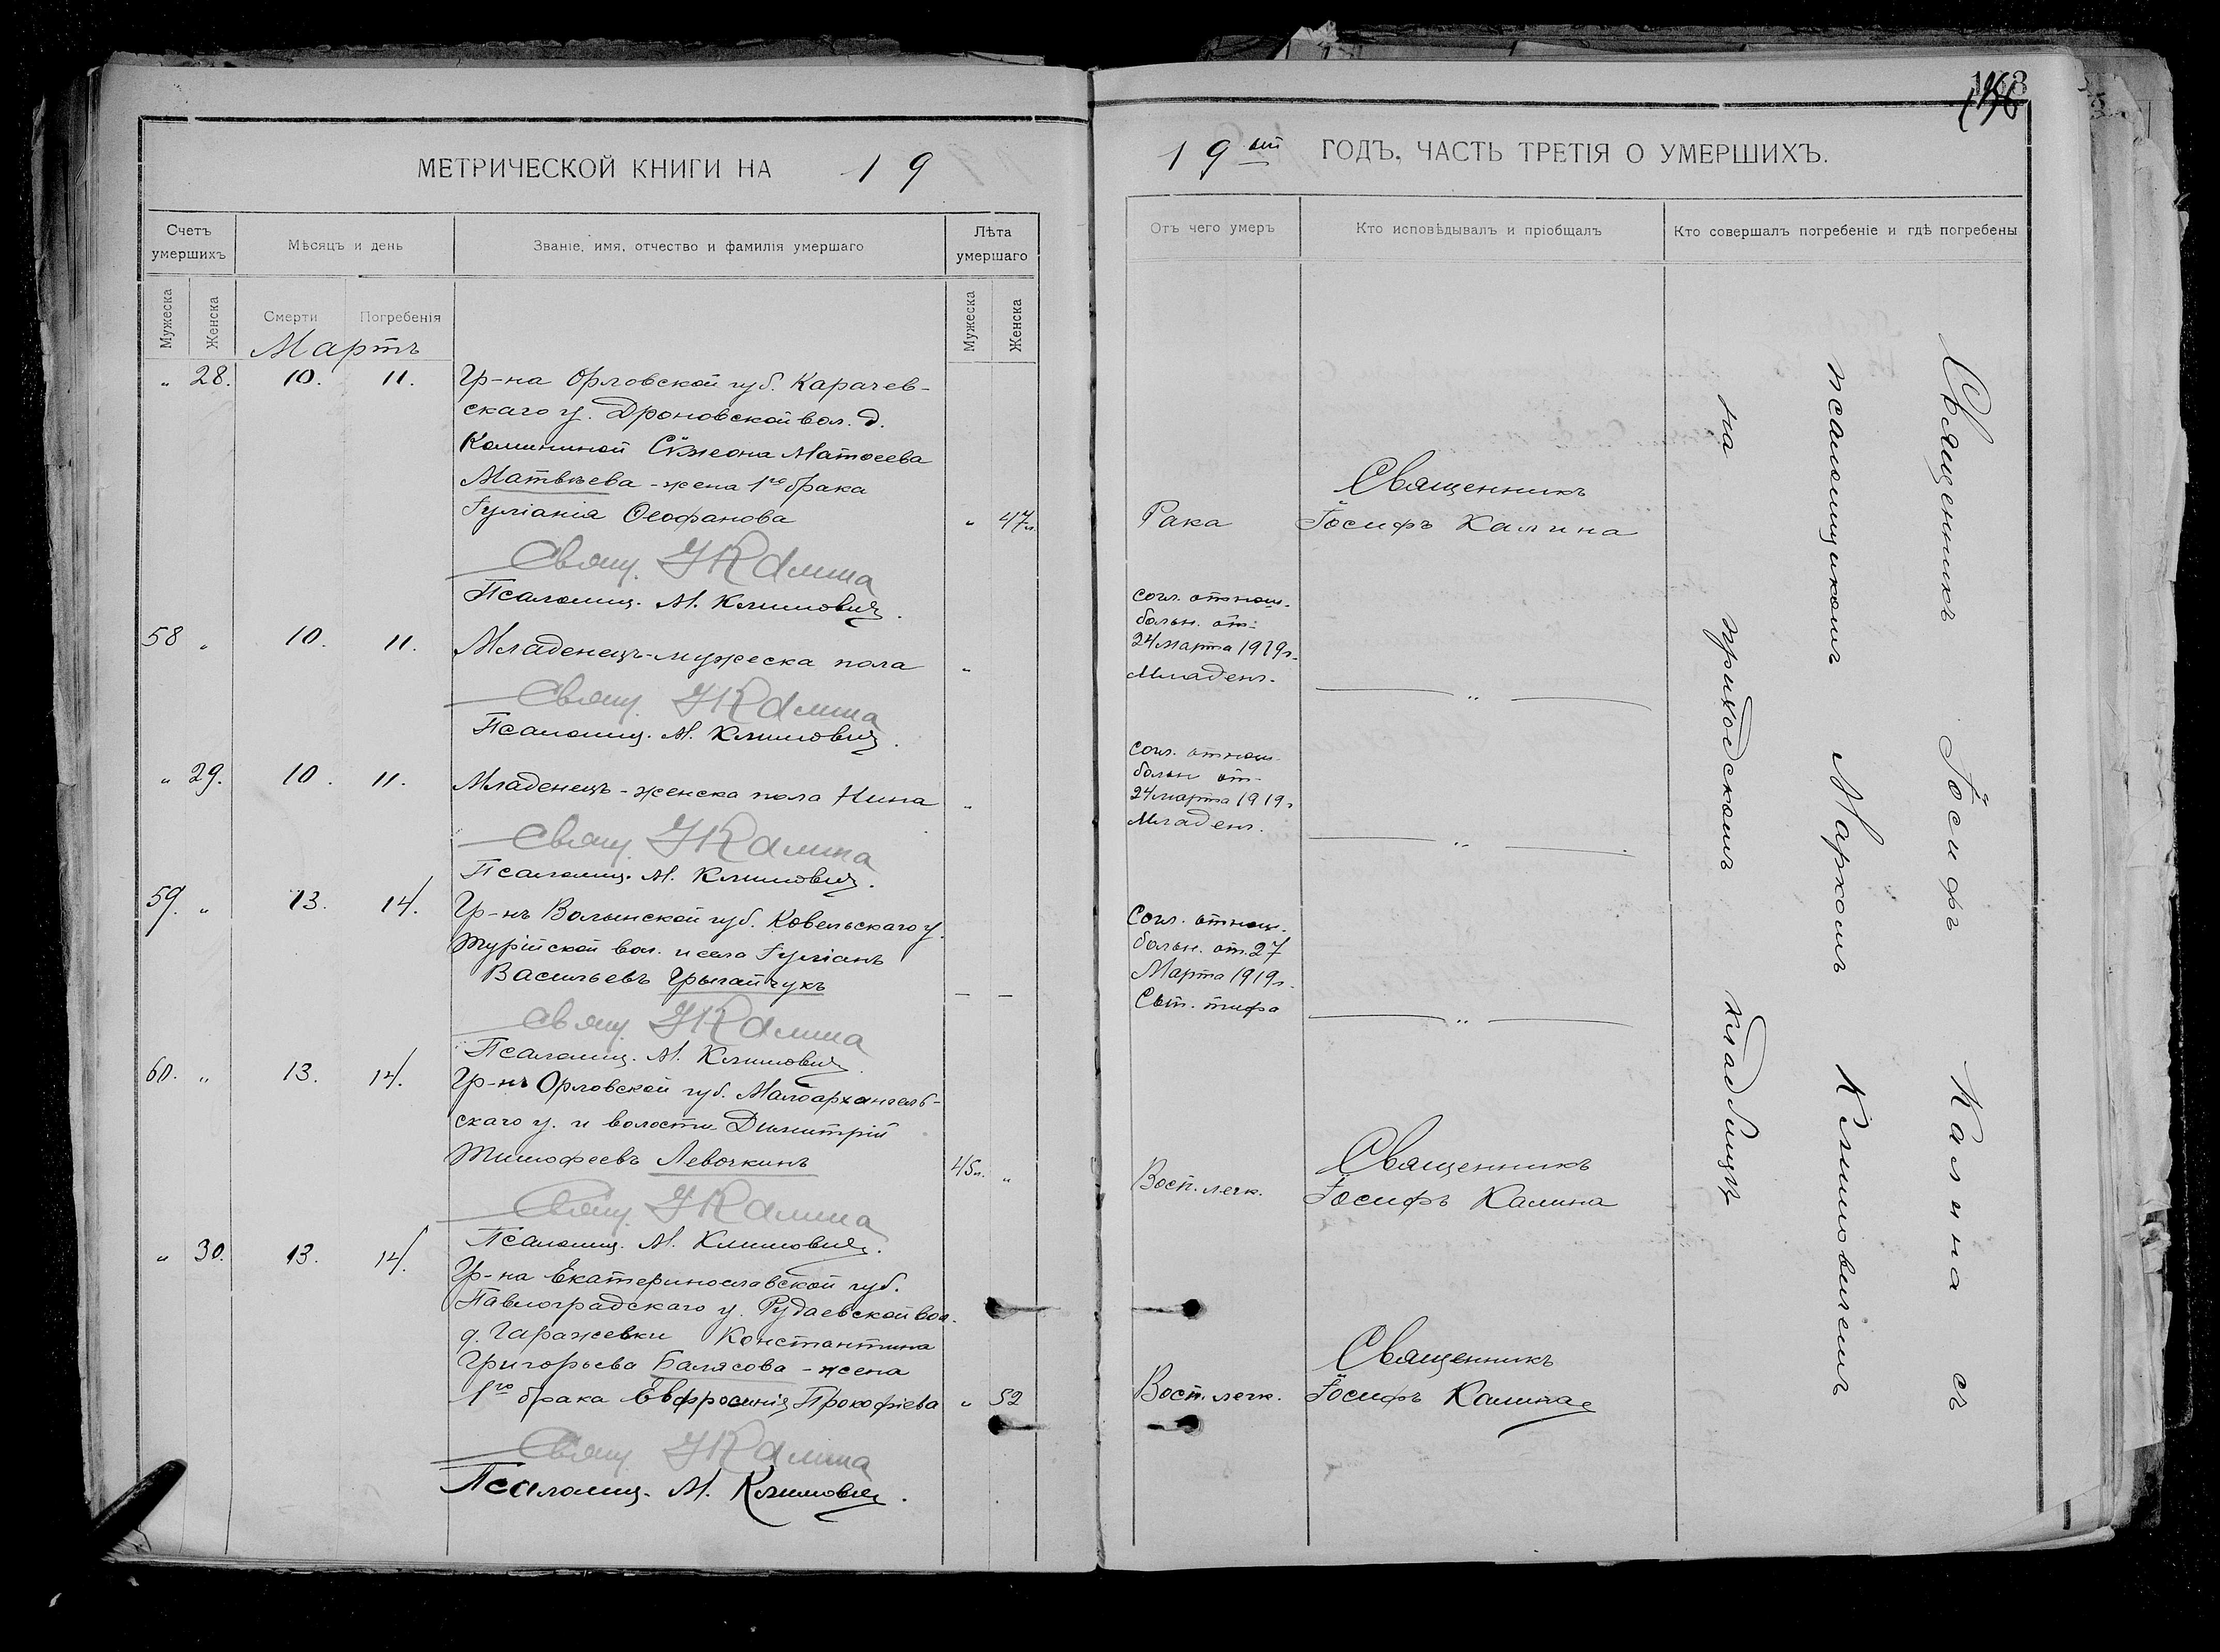 МЕТРИЧЕСКОЙ КНИГИ НА 19
Счетъ умершихъ
Мѣсяцъ и день
Званіе, имя, отчество и фамилія умершаго
Лѣта умершаго
Мужеска
Женска
Смерти
Погребенія
Мужеска
Женска
Мартъ
" 28. 10. 11. Гр-на Орловской губ. Карачев-
скаго у. Дроновской вол. д.
Сѵмеона Матѳеева
Матвѣева - жена 1го брака
Іуліанія Ѳеофанова " 47 л.
Свящ. І Калина
Псаломщ. М. Климович.
58 " 10. 11. Младенецъ-мужеска пола "
Свящ. І Калина
Псаломщ. М. Климович.
" 29. 10. 11. Младенецъ - женска пола Нина "
Свящ. І Калина
Псаломщ. М. Климович.
59. " 13. 14. Гр-нъ Волынской губ. Ковельскаго у.
Турійской вол. и села Іуліанъ
Васильевъ Грыгайчукъ — —
Свящ. І Калина
Псаломщ. М. Климович.
60. " 13. 14. Гр-нъ Орловской губ. Малоархангель-
скаго у. и волости Димитрій
Тимофеевъ Левочкинъ 45 л. "
Свящ. І Калина
Псаломщ. М. Климович.
" 30. 13. 14. Гр-на Екатеринославской губ.
Павлоградскаго у. Рудаевской вол.
д. Гаражевки Константина
Григорьева Балясова - жена
1го брака Евфросинія Прокофіева " 52
Свящ. І Калина
Псаломщ. М. Климович.
19 ый ГОДЪ, ЧАСТЬ ТРЕТІЯ О УМЕРШИХЪ.
Отъ чего умеръ
Кто исповѣдывалъ и пріобщалъ
Кто совершалъ погребеніе и гдѣ погребены
Священникъ
Рака Іосифъ Калина
согл. отнош.
больн. от.
24 марта 1919 г.
Младен. — " —
согл. отнош.
больн от.
24 марта 1919 г.
Младен. — " —
Согл. отнош.
больн. от. 27
Марта 1919 г.
Сып. тифа — " —
Священникъ
Восп. легк. Іосифъ Калина
Священникъ
Восп. легк. Іосифъ Калина
Священникъ Іосифъ Калина съ
псаломщикомъ Маркомъ Климовичемъ
на приходскомъ кладбищѣ